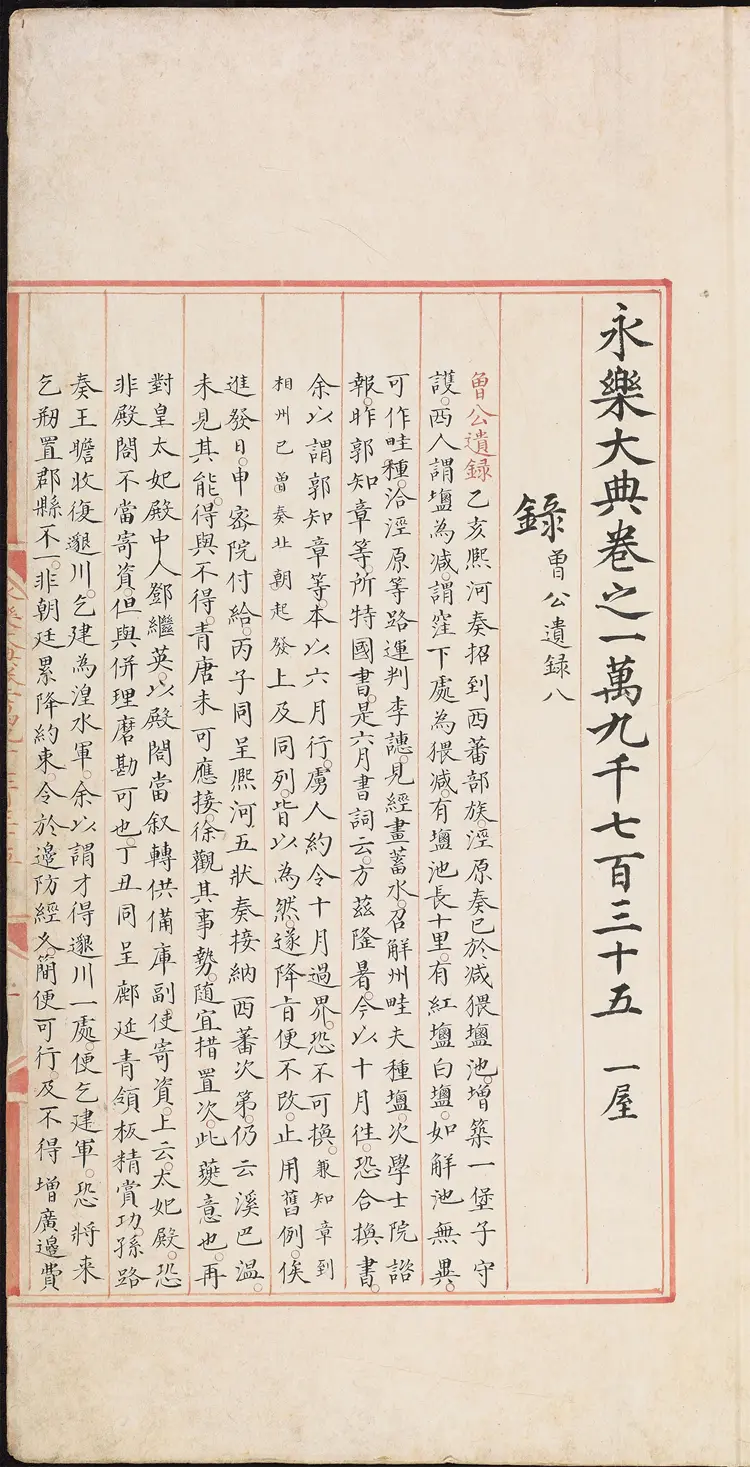 永樂大典卷之一萬九千七百三十五　一屋
錄　曾公遺録八
曾公遺録乙亥熈河奏招到西蕃部族。涇原奏已於减猥鹽池。增築一堡子守
䕶。西人謂鹽為减。謂窪下處為猥减。有鹽池長十里。有紅鹽白鹽。如解池無異。
可作畦種。洽涇原等路運判李譓。見經畫蓄水。召解州畦夫種鹽。次學士院諮
報。昨郭知章等。所特國書。是六月書詞云。方兹隆暑。今以十月徃。恐合換書。
余以謂郭知章等。本以六月行。虜人約令十月過界。恐不可換。兼知章到
相州已曾奏北朝起發上及同列。皆以為然。遂降旨便不改。止用舊例。俟
進發日。申宻院付給。丙子同呈熈河五狀奏接納西蕃次第。仍云溪巴温。
未見其能。得與不得。青唐未可應接。徐觀其事勢。随宜措置次。此夔意也。再
對皇太妃殿中人鄧繼英。以殿閤當叙轉供備庫副使寄資。上云。太妃殿。恐
非殿閤不當寄資。但與併理磨勘可也。丁丑同呈鄜延青領板精賞功。孫路
奏王瞻收復邈川。乞建為湟水軍。余以謂才得邈川一處。便乞建軍。恐將来
乞剏置郡縣不一。非朝廷累降約束。令於邊防經久簡便可行。及不得增廣邉費